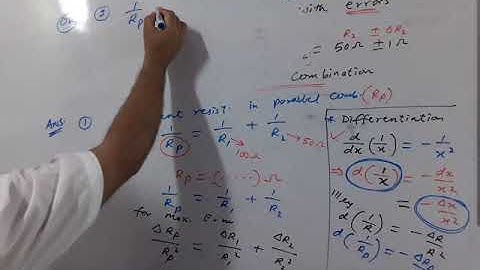 with errors
R₂ ± ΔR₂
= 50Ω ± 1Ω
Combination
OR ② 1/Rₚ
Ans: ① resist. in parallel comb. (Rₚ)
1/Rₚ = 1/R₁ + 1/R₂
100Ω 50Ω
Rₚ = (.....)Ω
1/Rₚ = 1/R₁ + 1/R₂
for max. Error
ΔRₚ/Rₚ² = ΔR₁/R₁² + ΔR₂/R₂²
* Differentiation
d/dx (1/x) = -1/x²
⇒ d(1/x) = -dx/x²
= -Δx/x²
d(1/R) = -ΔR/R²
d(1/Rₚ) = -ΔRₚ